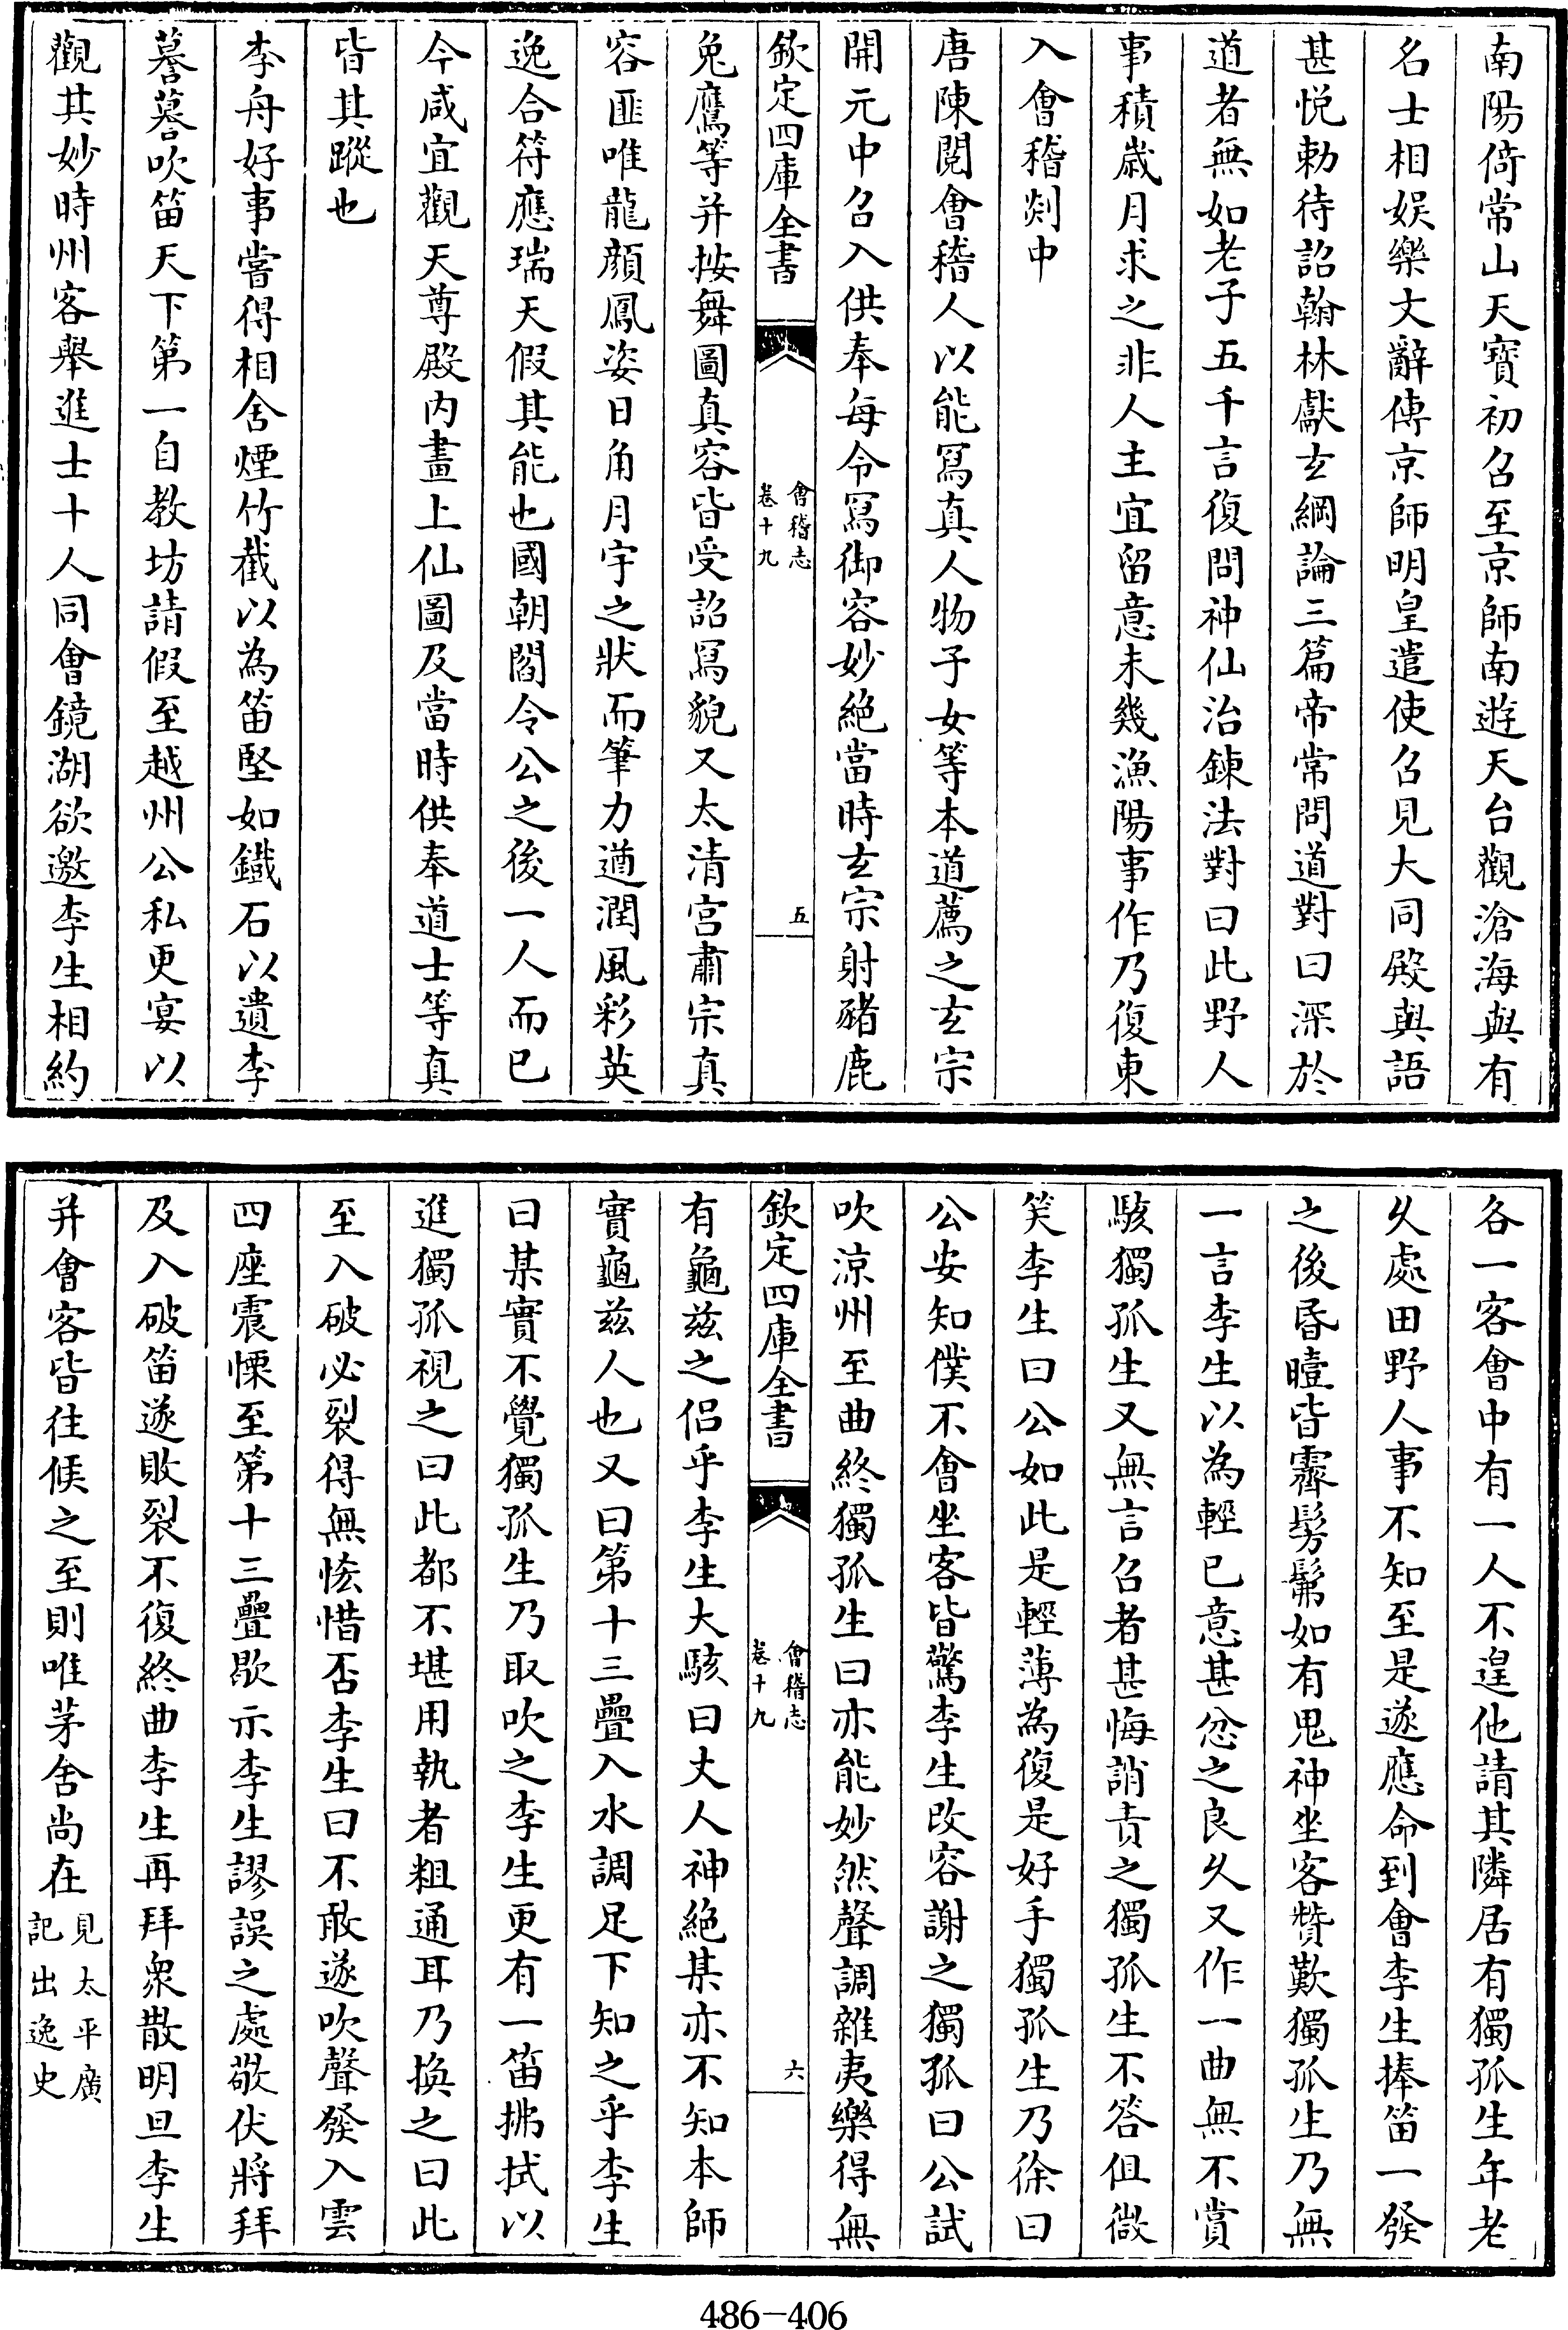 南陽倚常山天寳初召至京師南遊天台觀滄海與有
名士相娛樂文辭傳京師明皇遣使召見大同殿與語
甚悦勅待詔翰林獻玄綱論三篇帝常問道對曰深於
道者無如老子五千言復問神仙治鍊法對曰此野人
事積歳月求之非人主宜留意未幾漁陽事作乃復東
入會稽剡中
唐陳閎會稽人以能冩真人物子女等本道薦之玄宗
開元中召入供奉每令冩御容妙絶當時玄宗射豬鹿
欽定四庫全書
會稽志
卷十九
五
兔鷹等并按舞圖真容皆受詔冩貌又太清宫肅宗真
容匪唯龍顔鳳姿日角月宇之狀而筆力遒潤風彩英
逸合符應瑞天假其能也國朝閻令公之後一人而已
今咸宜觀天尊殿内畫上仙圖及當時供奉道士等真
皆其蹤也
李舟好事嘗得相舍煙竹截以為笛堅如鐡石以遺李
謩謩吹笛天下第一自教坊請假至越州公私更宴以
觀其妙時州客舉進士十人同會鏡湖欲邀李生相約
各一客會中有一人不遑他請其隣居有獨孤生年老
乆處田野人事不知至是遂應命到會李生捧笛一發
之後昏曀皆霽髣髴如有鬼神坐客贊歎獨孤生乃無
一言李生以為輕已意甚忿之良乆又作一曲無不賞
駭獨孤生又無言召者甚悔誚責之獨孤生不答但微
笑李生曰公如此是輕薄為復是好手獨孤生乃徐曰
公安知僕不會坐客皆驚李生改容謝之獨孤曰公試
吹涼州至曲終獨孤生曰亦能妙然聲調雜夷樂得無
欽定四庫全書
會稽志
卷十九
六
有龜兹之侣乎李生大駭曰丈人神絶某亦不知本師
實龜兹人也又曰第十三疊入水調足下知之乎李生
曰某實不覺獨孤生乃取吹之李生更有一笛拂拭以
進獨孤視之曰此都不堪用執者粗通耳乃換之曰此
至入破必裂得無恡惜否李生曰不敢遂吹聲發入雲
四座震慄至第十三疊歇示李生謬誤之處敬伏將拜
及入破笛遂敗裂不復終曲李生再拜衆散明旦李生
并會客皆往候之至則唯茅舍尚在見太平廣
記出逸史
486-406